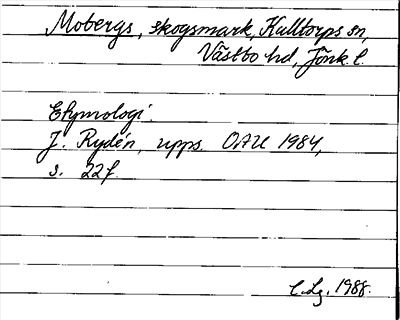 Mobergs, skogsmark, Kulltorps sn,
Västbo hd, Jönk. l.
Etymologi.
J. Rydén, upps. OAU 1984,
s. 22f.
C.Lg. 1988.